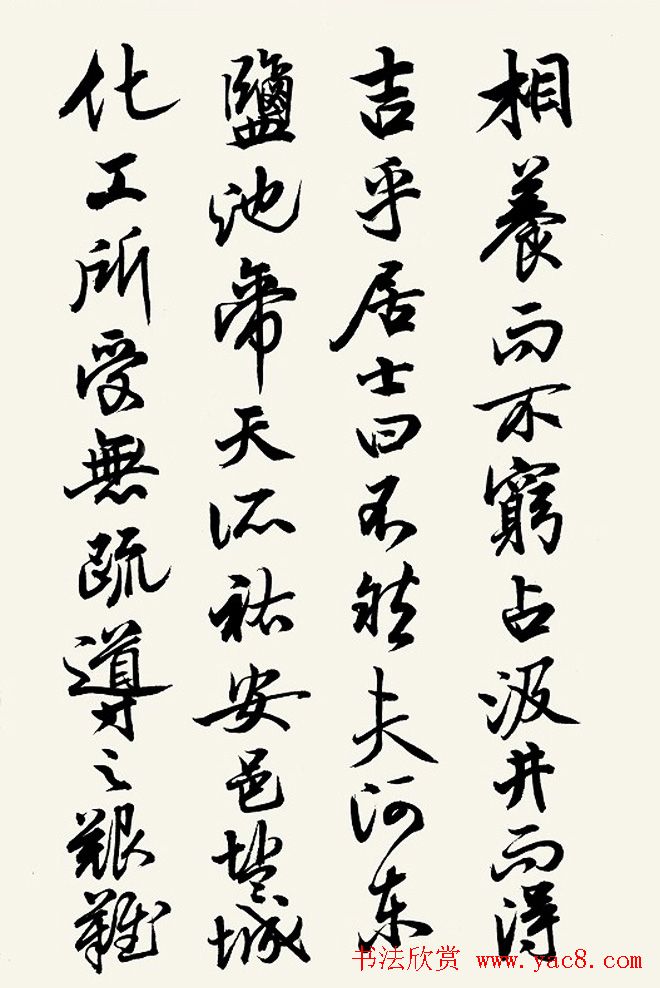 相養而不窮占汲井而得
吉乎居士曰不然夫河东
鹽池帝天所祐安邑盐城
化工所受無疏導之艱難
书法欣赏 www.yac8.com